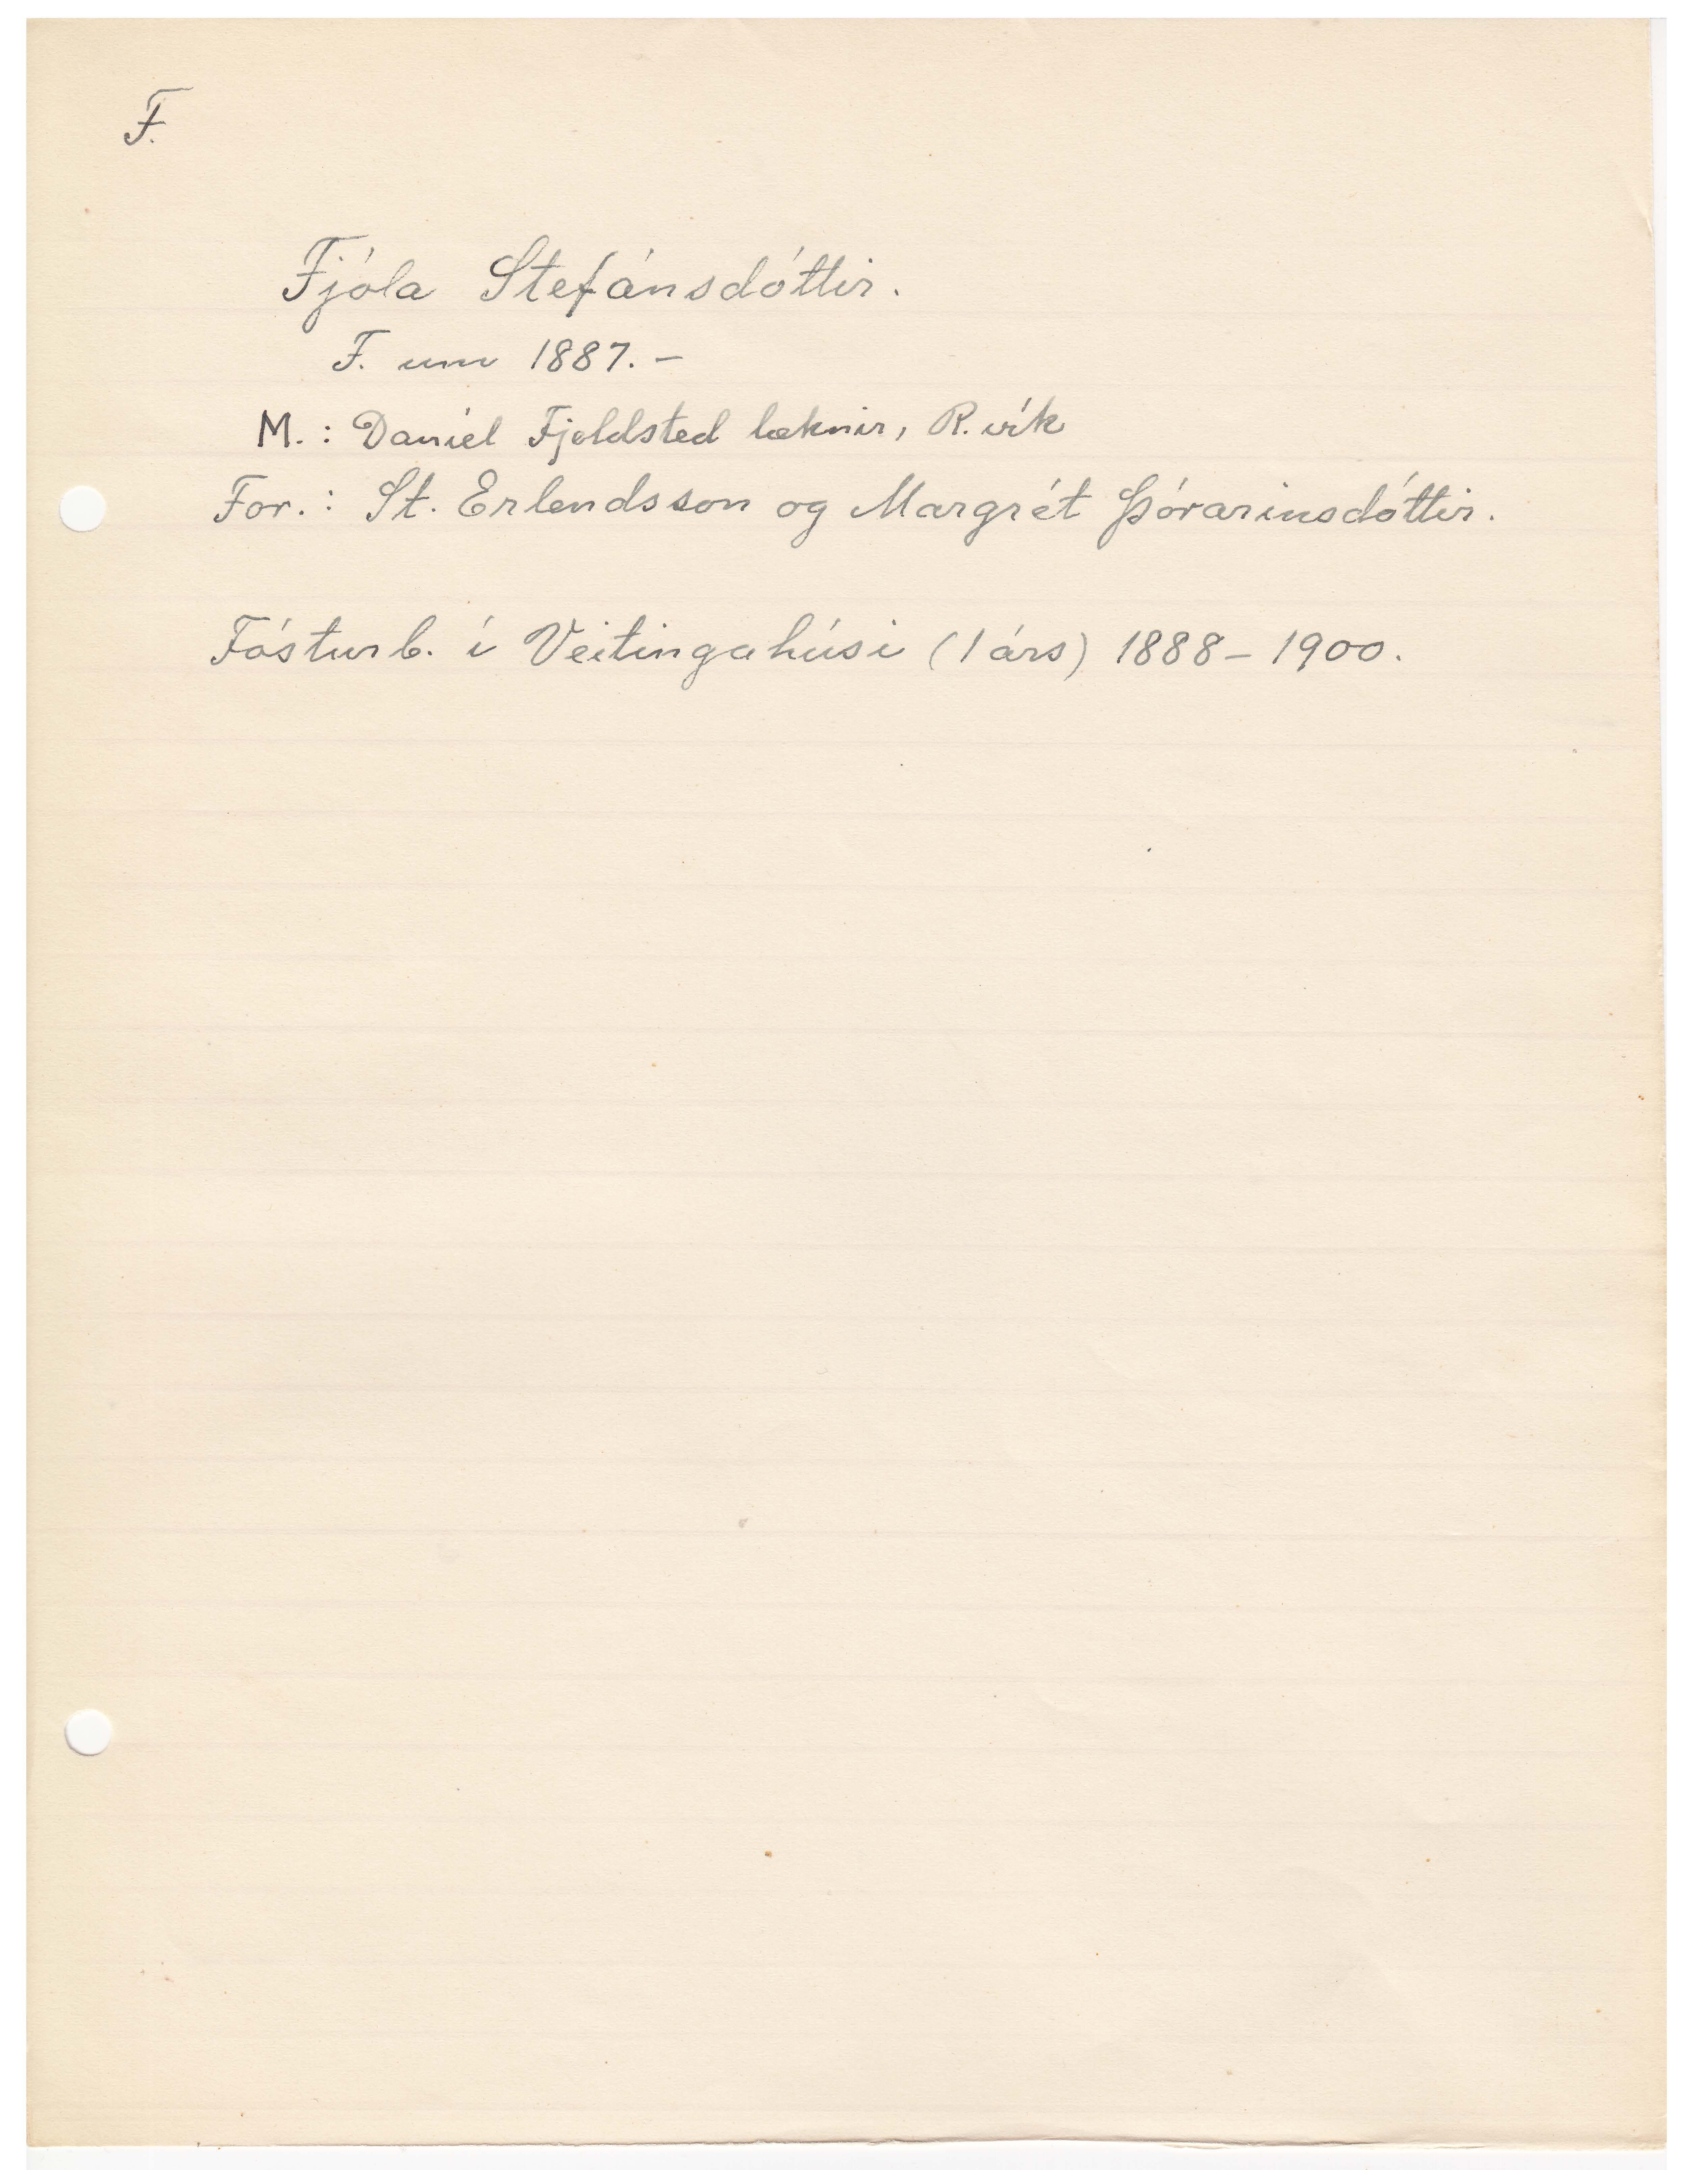 F.
Fjóla Stefánsdóttir.
F. um 1887. -
M.: Daníel Fjeldsted læknir, R.vík
For.: St. Erlendsson og Margrét Þórarinsdóttir.
Fósturb. í Veitingahúsi (1 árs) 1888 - 1900.